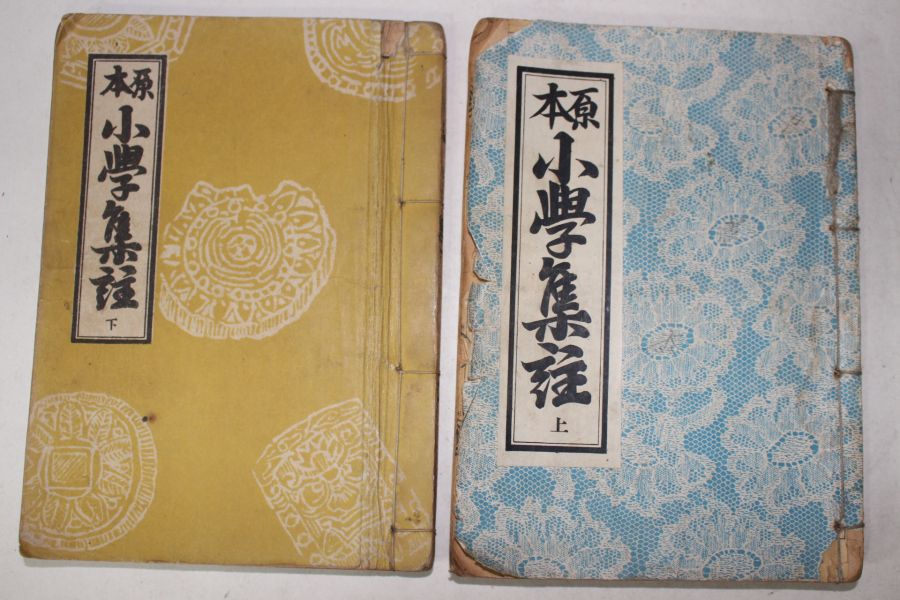 原本
小學集註
下
原本
小學集註
上